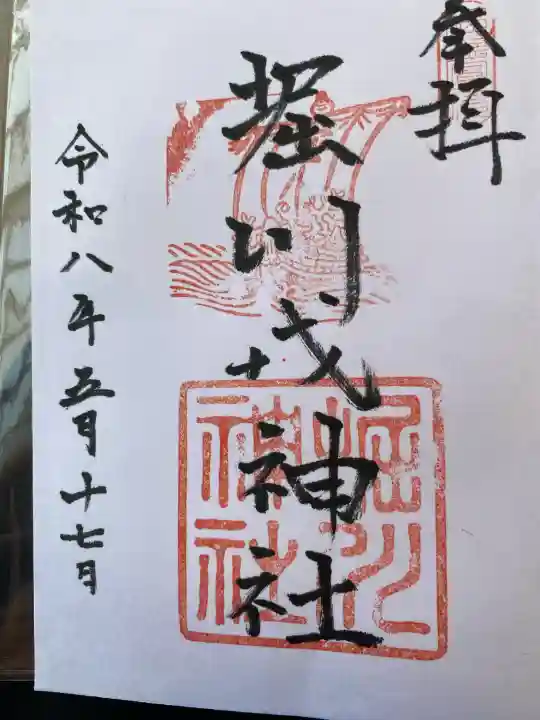 奉拝
堀川戎神社
堀川
神社
令和八年五月十七日